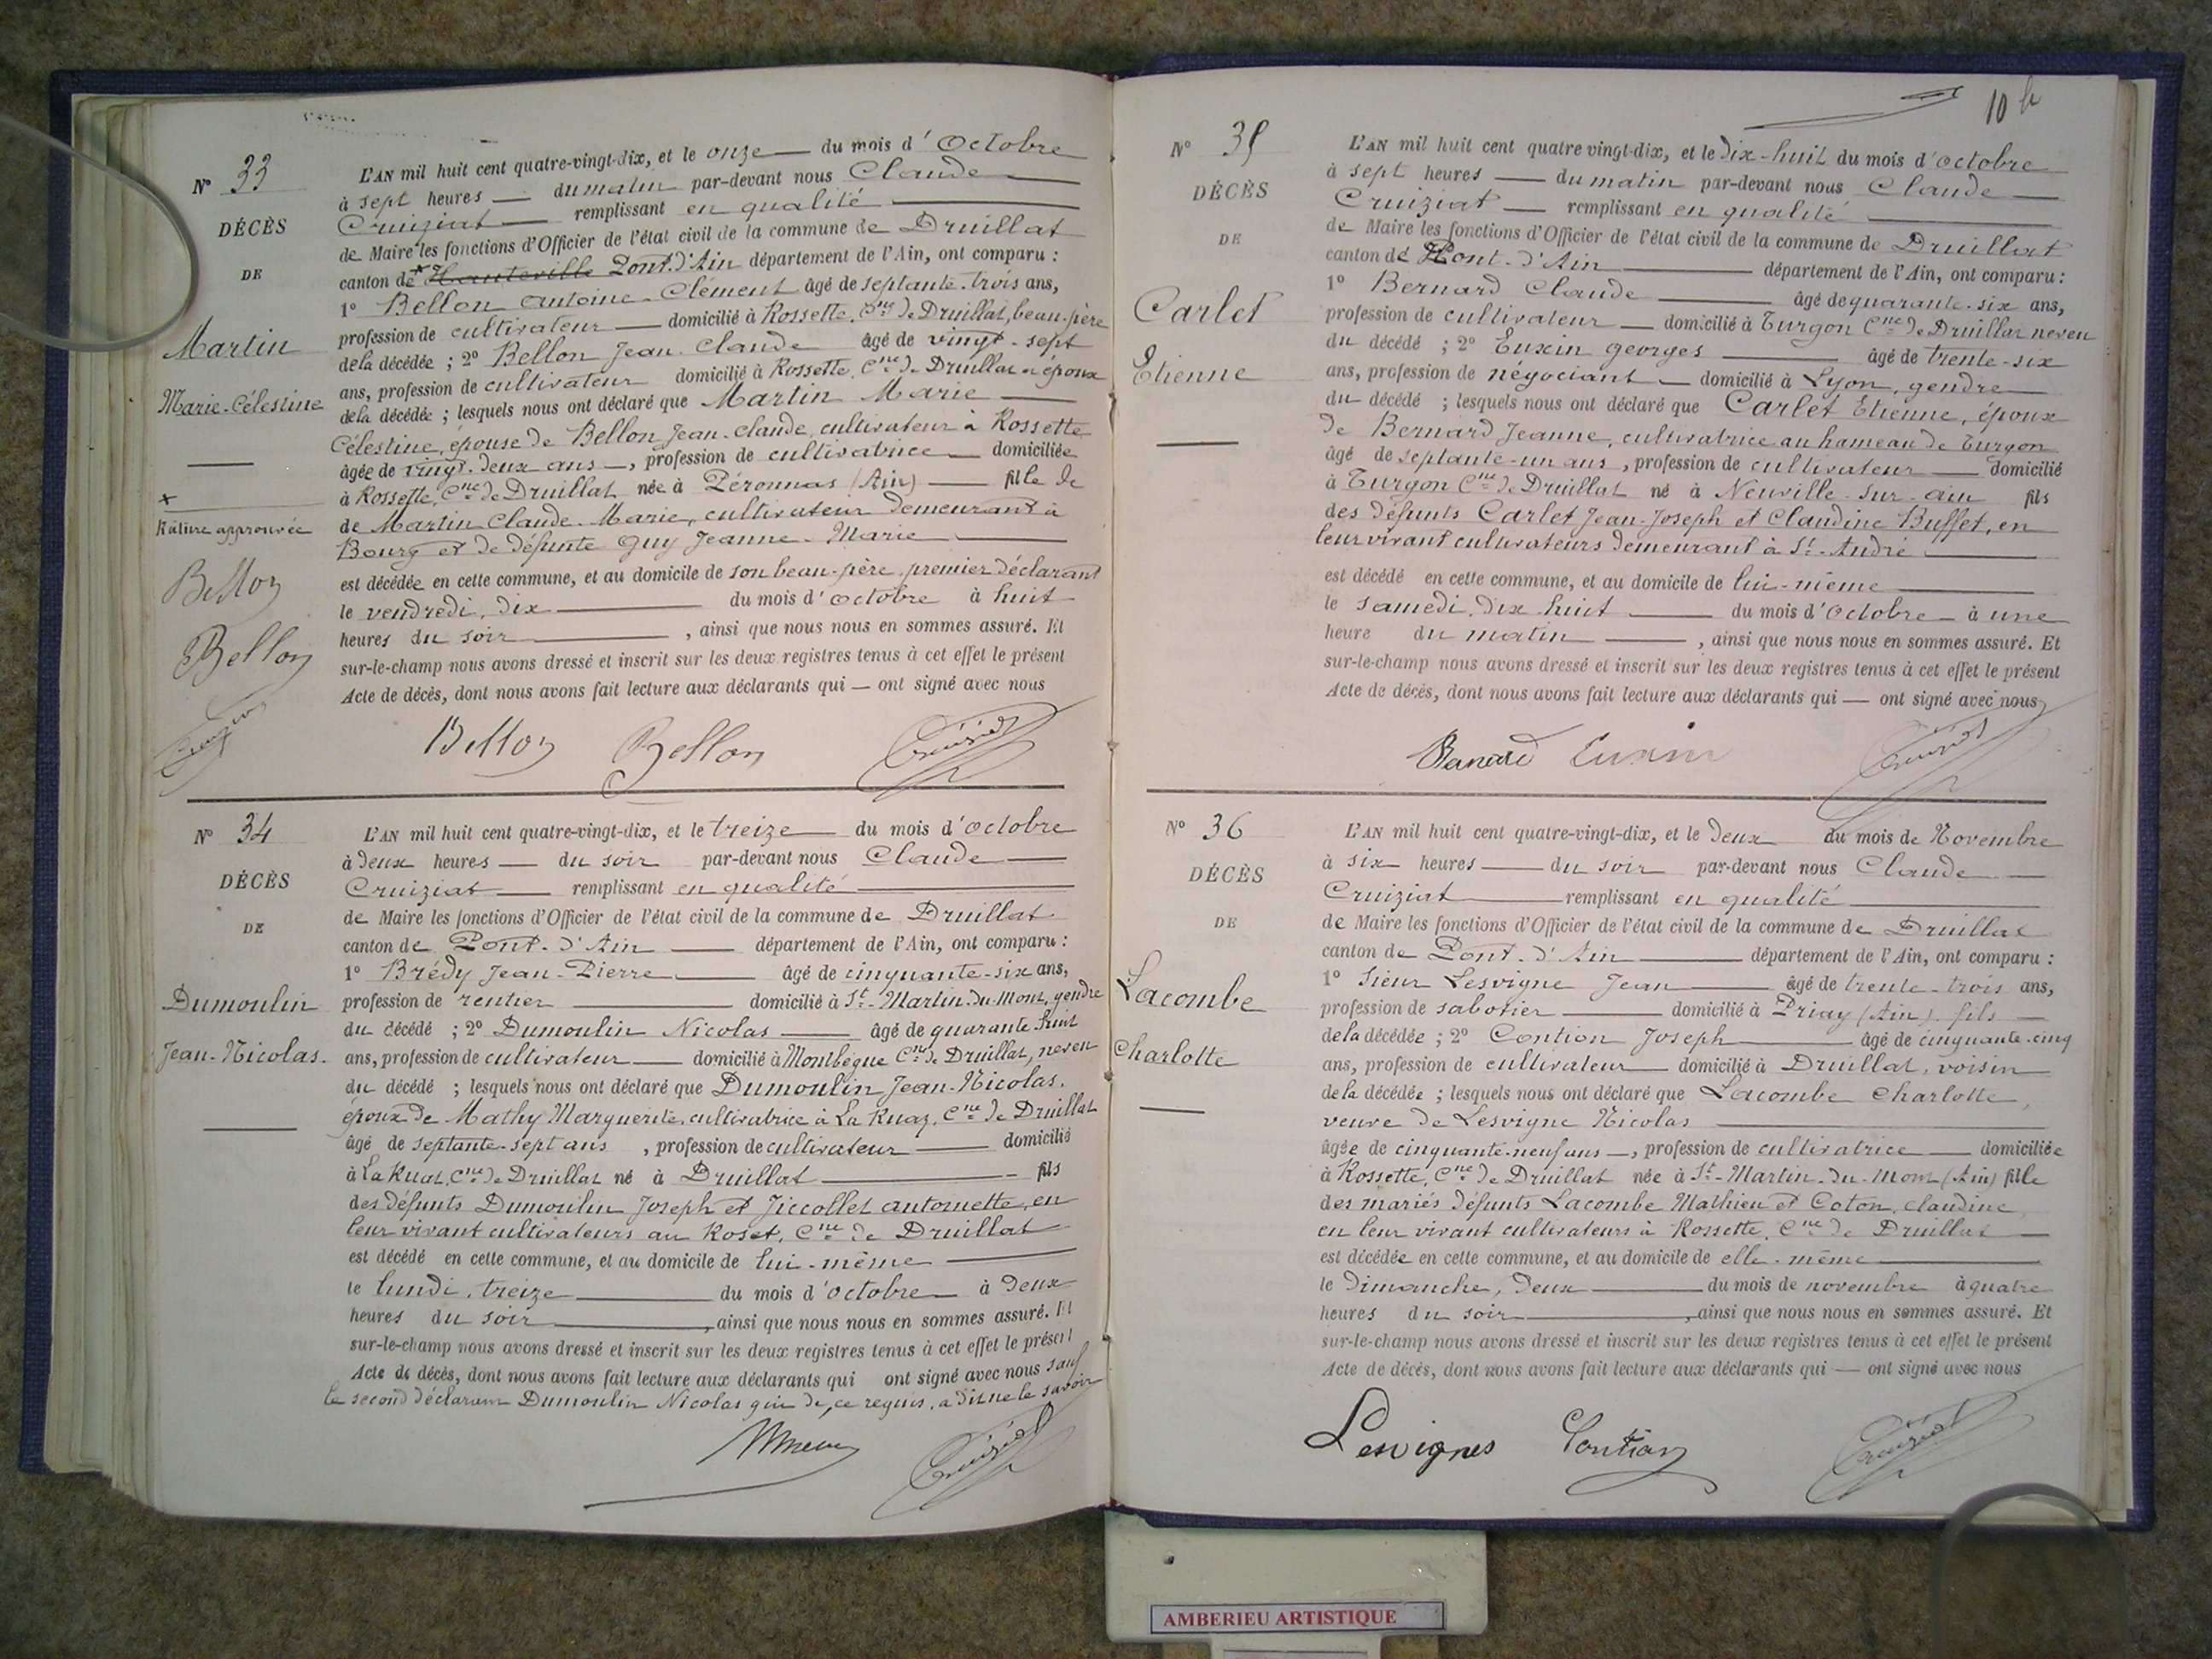 N° 33
DÉCÈS
DE
Martin
Marie-Célestine
×
Râture approuvée
Bellon
Bellon
Cruiziat
L'AN mil huit cent quatre-vingt-dix, et le onze du mois d'Octobre
à sept heures du matin par-devant nous Claude
Cruiziat remplissant en qualité
de Maire les fonctions d'Officier de l'état civil de la commune de Druillat
canton de × Hauteville Pont-d'Ain département de l'Ain, ont comparu :
1° Bellon Antoine-Clément âgé de septante-trois ans,
profession de cultivateur domicilié à Rossette, Cne de Druillat, beau-père
de la décédée ; 2° Bellon Jean-Claude âgé de vingt-sept
ans, profession de cultivateur domicilié à Rossette, Cne de Druillat, époux
de la décédée ; lesquels nous ont déclaré que Martin Marie
Célestine, épouse de Bellon Jean-Claude, cultivateur à Rossette
âgée de vingt-deux ans, profession de cultivatrice domiciliée
à Rossette, Cne de Druillat née à Péronnas (Ain) fille de
de Martin Claude-Marie, cultivateur demeurant à
Bourg et de défunte Guy Jeanne-Marie
est décédée en cette commune, et au domicile de son beau-père, premier déclarant
le vendredi, dix du mois d'octobre à huit
heures du soir, ainsi que nous nous en sommes assuré. Et
sur-le-champ nous avons dressé et inscrit sur les deux registres tenus à cet effet le présent
Acte de décès, dont nous avons fait lecture aux déclarants qui — ont signé avec nous
Bellon Bellon Cruiziat
N° 34
DÉCÈS
DE
Dumoulin
Jean-Nicolas.
L'AN mil huit cent quatre-vingt-dix, et le treize du mois d'octobre
à deux heures du soir par-devant nous Claude
Cruiziat remplissant en qualité
de Maire les fonctions d'Officier de l'état civil de la commune de Druillat
canton de Pont-d'Ain département de l'Ain, ont comparu :
1° Brédy Jean-Pierre âgé de cinquante-six ans,
profession de rentier domicilié à St-Martin-du-Mont, gendre
du décédé ; 2° Dumoulin Nicolas âgé de quarante huit
ans, profession de cultivateur domicilié à Montbègue Cne de Druillat, neveu
du décédé ; lesquels nous ont déclaré que Dumoulin Jean-Nicolas,
époux de Mathy Marguerite, cultivatrice à La Ruaz, Cne de Druillat
âgé de septante-sept ans, profession de cultivateur domicilié
à La Ruaz, Cne de Druillat né à Druillat fils
des défunts Dumoulin Joseph et Jiccollet antoinette, en
leur vivant cultivateurs au Roset, Cne de Druillat
est décédé en cette commune, et au domicile de lui-même
le lundi, treize du mois d'octobre à deux
heures du soir, ainsi que nous nous en sommes assuré. Et
sur-le-champ nous avons dressé et inscrit sur les deux registres tenus à cet effet le présent
Acte de décès, dont nous avons fait lecture aux déclarants qui ont signé avec nous sauf
le second déclarant Dumoulin Nicolas qui de, ce requis, a dit ne le savoir
Cruiziat
10
N° 35
DÉCÈS
DE
Carlet
Etienne
L'AN mil huit cent quatre vingt-dix, et le dix-huit du mois d'octobre
à sept heures du matin par-devant nous Claude
Cruiziat remplissant en qualité
de Maire les fonctions d'Officier de l'état civil de la commune de Druillat
canton de Pont-d'Ain département de l'Ain, ont comparu :
1° Bernard Claude âgé de quarante-six ans,
profession de cultivateur domicilié à Turgon Cne de Druillat neveu
du décédé ; 2° Euxin georges âgé de trente-six
ans, profession de négociant domicilié à Lyon, gendre
du décédé ; lesquels nous ont déclaré que Carlet Etienne, époux
de Bernard Jeanne, cultivatrice au hameau de Turgon
âgé de septante-un ans, profession de cultivateur domicilié
à Turgon Cne de Druillat né à Neuville-sur-ain fils
des défunts Carlet Jean-Joseph et Claudine Buffet, en
leur vivant cultivateurs demeurant à St-André
est décédé en cette commune, et au domicile de lui-même
le samedi, dix huit du mois d'Octobre à une
heure du matin, ainsi que nous nous en sommes assuré. Et
sur-le-champ nous avons dressé et inscrit sur les deux registres tenus à cet effet le présent
Acte de décès, dont nous avons fait lecture aux déclarants qui — ont signé avec nous
Euxin Cruiziat
N° 36
DÉCÈS
DE
Lacombe
Charlotte
L'AN mil huit cent quatre-vingt-dix, et le deux du mois de Novembre
à six heures du soir par-devant nous Claude
Cruiziat remplissant en qualité
de Maire les fonctions d'Officier de l'état civil de la commune de Druillat
canton de Pont-d'Ain département de l'Ain, ont comparu :
1° Sieur Lesvigne Jean âgé de trente-trois ans,
profession de sabotier domicilié à Priay (Ain), fils
de la décédée ; 2° Contion Joseph âgé de cinquante-cinq
ans, profession de cultivateur domicilié à Druillat, voisin
de la décédée ; lesquels nous ont déclaré que Lacombe Charlotte,
veuve de Lesvigne Nicolas
âgée de cinquante-neuf ans, profession de cultivatrice domiciliée
à Rossette, Cne de Druillat née à St-Martin-du-Mont (Ain) fille
des mariés défunts Lacombe Mathieu et Coton, Claudine
en leur vivant cultivateurs à Rossette, Cne de Druillat
est décédée en cette commune, et au domicile de elle-même
le Dimanche, deux du mois de novembre à quatre
heures du soir, ainsi que nous nous en sommes assuré. Et
sur-le-champ nous avons dressé et inscrit sur les deux registres tenus à cet effet le présent
Acte de décès, dont nous avons fait lecture aux déclarants qui — ont signé avec nous
Lesvignes Contion Cruiziat
AMBERIEU ARTISTIQUE